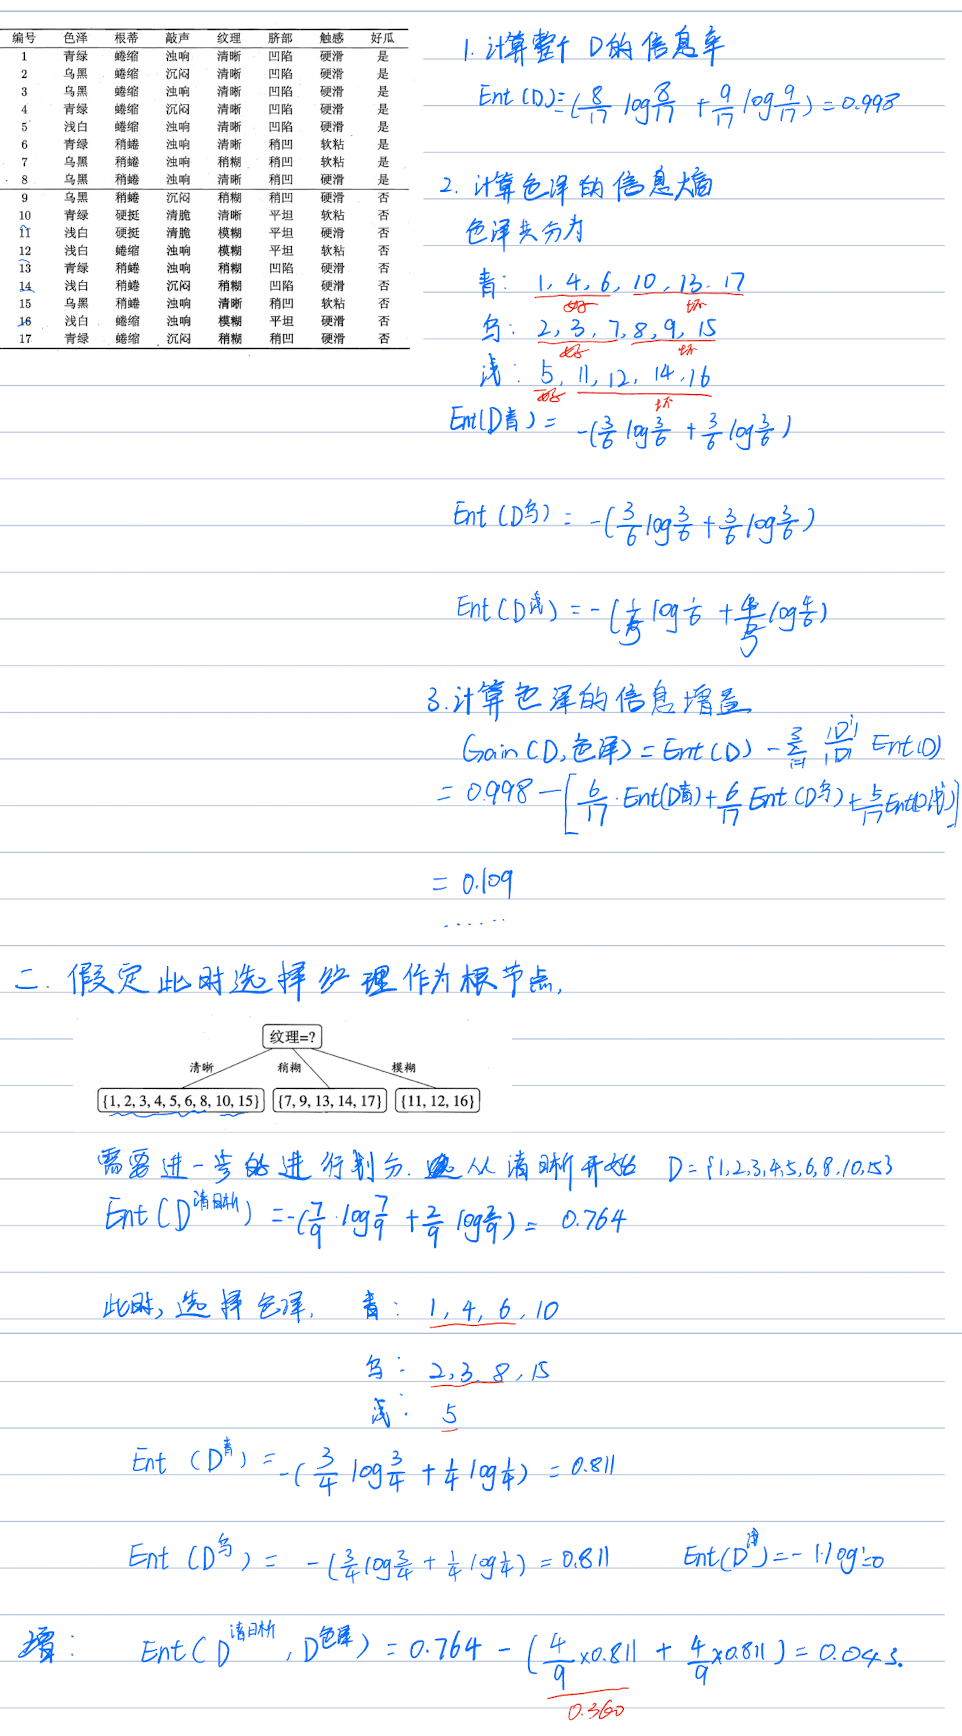 编号 色泽 根蒂 敲声 纹理 脐部 触感 好瓜
1 青绿 蜷缩 浊响 清晰 凹陷 硬滑 是
2 乌黑 蜷缩 沉闷 清晰 凹陷 硬滑 是
3 乌黑 蜷缩 浊响 清晰 凹陷 硬滑 是
4 青绿 蜷缩 沉闷 清晰 凹陷 硬滑 是
5 浅白 蜷缩 浊响 清晰 凹陷 硬滑 是
6 青绿 稍蜷 浊响 清晰 稍凹 软粘 是
7 乌黑 稍蜷 浊响 稍糊 稍凹 软粘 是
8 乌黑 稍蜷 浊响 清晰 稍凹 硬滑 是
9 乌黑 稍蜷 沉闷 稍糊 稍凹 硬滑 否
10 青绿 硬挺 清脆 清晰 平坦 软粘 否
11 浅白 硬挺 清脆 模糊 平坦 硬滑 否
12 浅白 蜷缩 浊响 模糊 平坦 软粘 否
13 青绿 稍蜷 浊响 稍糊 凹陷 硬滑 否
14 浅白 稍蜷 沉闷 稍糊 凹陷 硬滑 否
15 乌黑 稍蜷 浊响 清晰 稍凹 软粘 否
16 浅白 蜷缩 浊响 模糊 平坦 硬滑 否
17 青绿 蜷缩 沉闷 稍糊 稍凹 硬滑 否
1. 计算整个 D的信息率
Ent(D)=(8/17 log 8/17 + 9/17 log 9/17)=0.998
2. 计算色泽的信息熵
色泽共分为
青: 1, 4, 6, 10, 13. 17
好 坏
乌: 2, 3, 7, 8, 9, 15
好 坏
浅: 5, 11, 12, 14, 16
好 坏
Ent(D青) = -(3/6 log 3/6 + 3/6 log 3/6)
Ent(D乌) = -(3/6 log 3/6 + 3/6 log 3/6)
Ent(D浅) = -(1/5 log 1/6 + 4/5 log 4/6)
3.计算色泽的信息增益
Gain(D,色泽) = Ent(D) - 3Σi=1 |Di|/|D| Ent(D)
= 0.998 - [6/17·Ent(D青)+6/17 Ent(D乌)+5/17 Ent(D浅)]
= 0.109
......
二. 假定此时选择纹理作为根节点,
纹理=?
清晰 稍糊 模糊
{1, 2, 3, 4, 5, 6, 8, 10, 15} {7, 9, 13, 14, 17} {11, 12, 16}
需要进一步的进行划分. 从清晰开始 D={1,2,3,4,5,6,8,10,15}
Ent(D清晰) = -(7/9·log 7/9 + 2/9 log 2/9) = 0.764
此时, 选择色泽. 青: 1, 4, 6, 10
乌: 2,3, 8, 15
浅: 5
Ent (D青) = -(3/4 log 3/4 + 1/4 log 1/4) = 0.811
Ent (D乌) = -(3/4 log 3/4 + 1/4 log 1/4) = 0.811 Ent(D浅)=-1·log1=0
增: Ent(D清晰, D色泽) = 0.764 - (4/9×0.811 + 4/9×0.811) = 0.043.
0.360